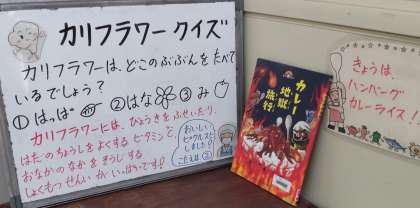 カリフラワー クイズ
カリフラワーは、どこのぶぶんをたべて
いるでしょう？
①はっぱ ②はな ③み
カリフラワーには、びょうきをふせいだり、
はだのちょうしをよくするビタミンと、
おなかのなかをそうじする
しょくもつせんいがいっぱいです！
おいしい
ピクルスに
しました！
こたえは②
カレー
地獄
旅行
きょうは、
ハンバーグ
カレーライス！